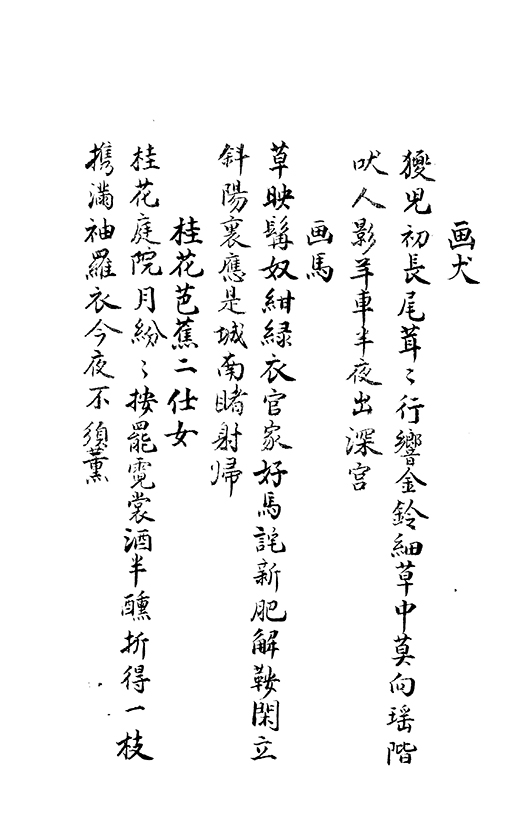 画犬
獶児初長尾茸〻行響金鈴細草中莫向瑶階
吠人影羊車半夜出深宮
画馬
草映髯奴紺緑衣官家好馬詫新肥解鞍閑立
斜陽裏應是城南賭射帰
桂花芭蕉二仕女
桂花庭院月紛〻按罷霓裳酒半醺折得一枝
携滿袖羅衣今夜不須薫